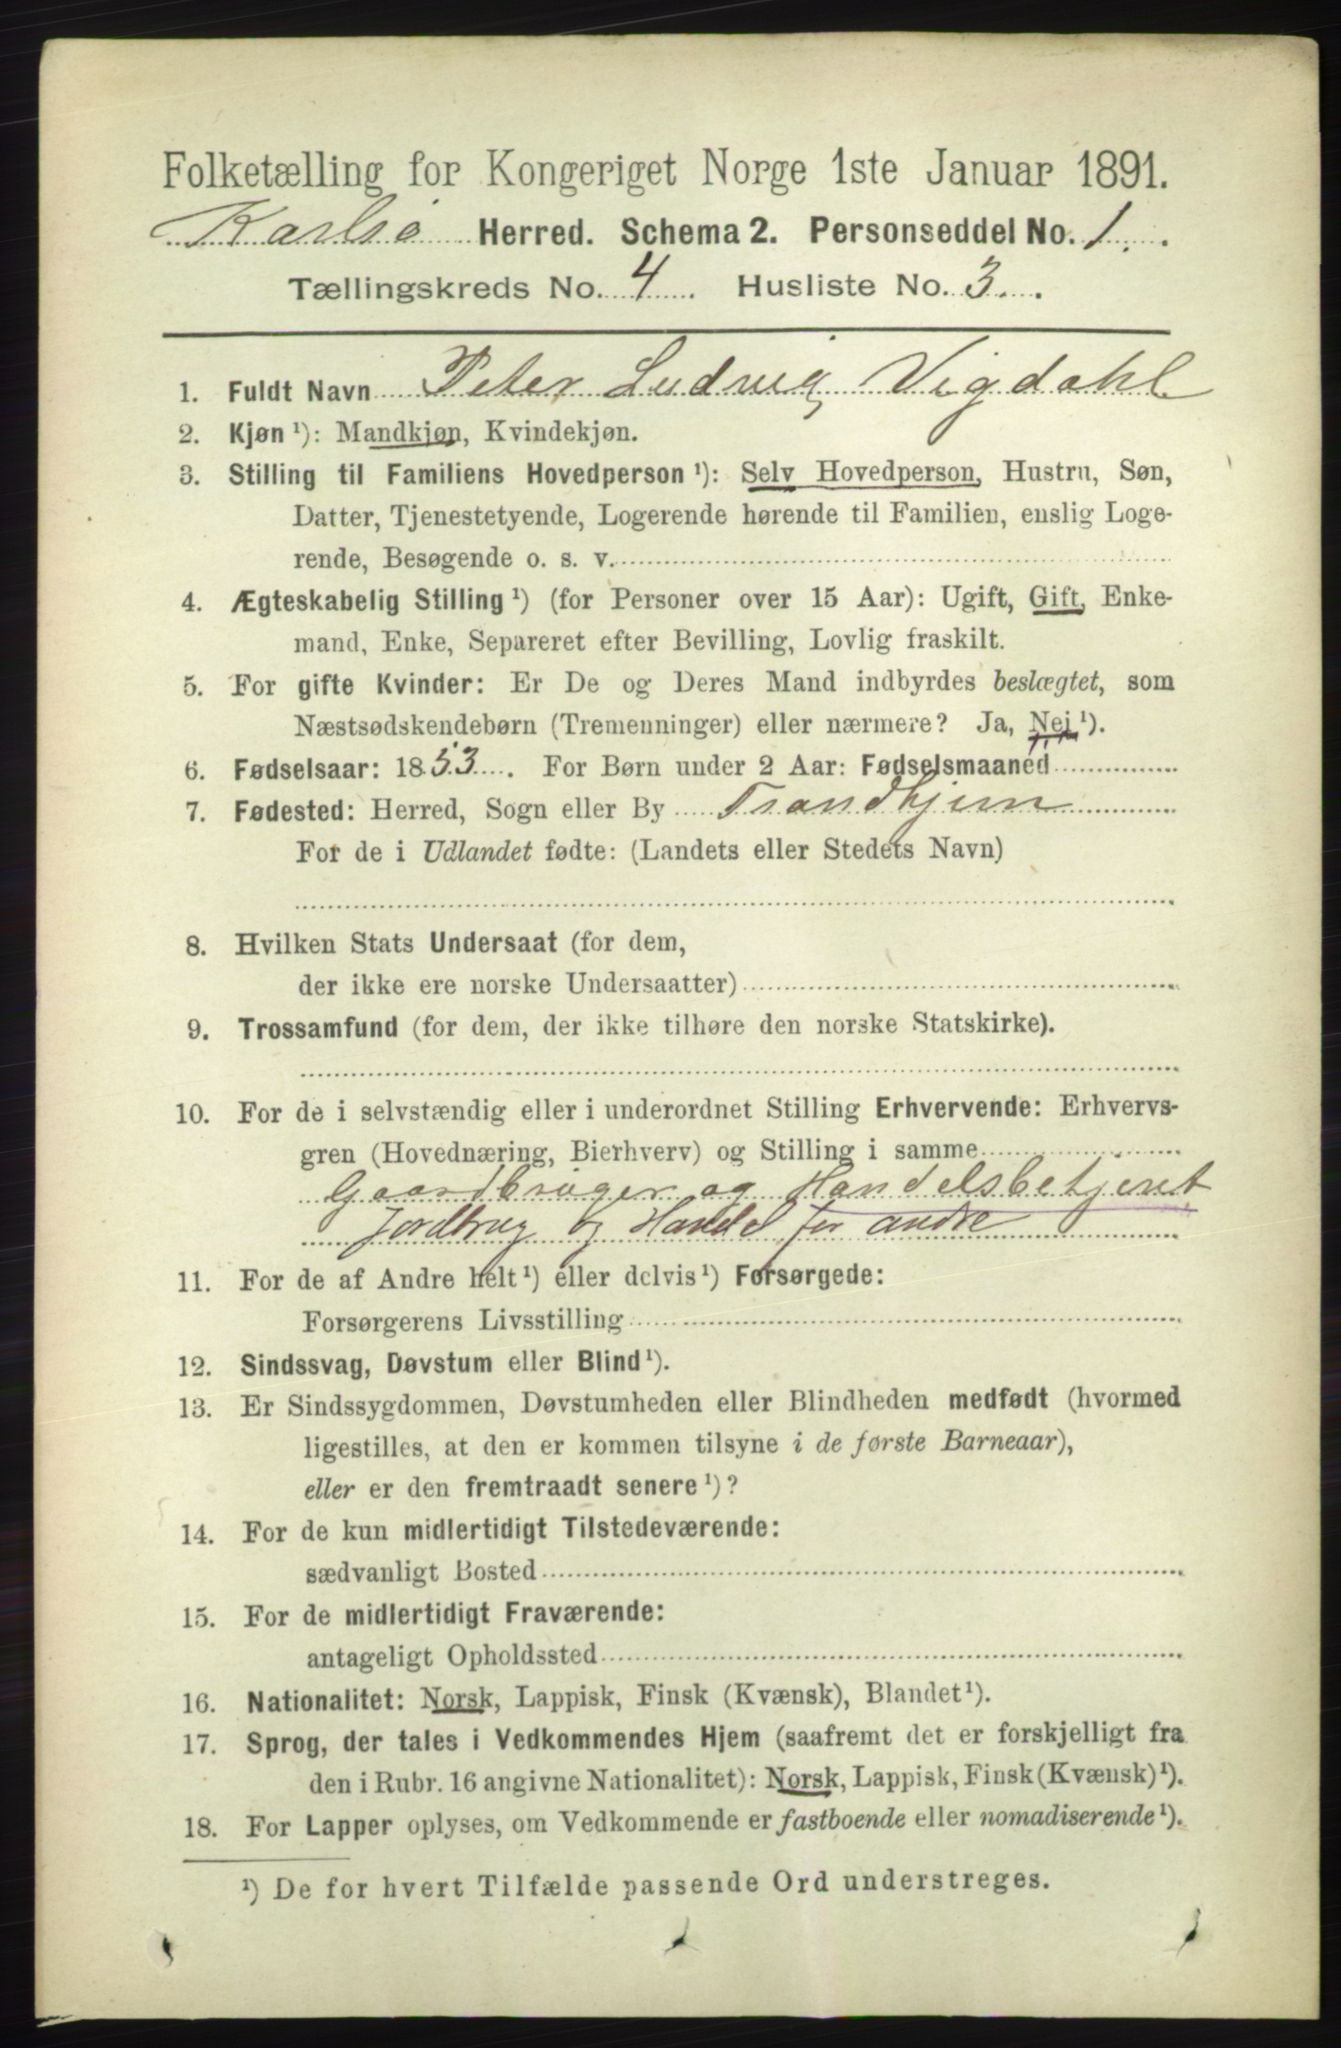 Folketælling for Kongeriget Norge 1ste Januar 1891.
Karlsø Herred. Schema 2. Personseddel No. 1.
Tællingskreds No. 4 Husliste No. 3.
1. Fuldt Navn Peter Ludvig Vigdahl
2. Kjøn ¹): Mandkjøn, Kvindekjøn.
3. Stilling til Familiens Hovedperson ¹): Selv Hovedperson, Hustru, Søn,
Datter, Tjenestetyende, Logerende hørende til Familien, enslig Loge-
rende, Besøgende o. s. v.
4. Ægteskabelig Stilling ¹) (for Personer over 15 Aar): Ugift, Gift, Enke-
mand, Enke, Separeret efter Bevilling, Lovlig fraskilt.
5. For gifte Kvinder: Er De og Deres Mand indbyrdes beslægtet, som
Næstsødskendebørn (Tremenninger) eller nærmere? Ja, Nej ¹).
6. Fødselsaar: 1853. For Børn under 2 Aar: Fødselsmaaned
7. Fødested: Herred, Sogn eller By Trondhjem
For de i Udlandet fødte: (Landets eller Stedets Navn)
8. Hvilken Stats Undersaat (for dem,
der ikke ere norske Undersaatter)
9. Trossamfund (for dem, der ikke tilhøre den norske Statskirke).
10. For de i selvstændig eller i underordnet Stilling Erhvervende: Erhvervs-
gren (Hovednæring, Bierhverv) og Stilling i samme
Gaardbruger og Handelsbetjent
Jordbrug og Handel for andre
11. For de af Andre helt ¹) eller delvis ¹) Forsørgede:
Forsørgerens Livsstilling
12. Sindssvag, Døvstum eller Blind ¹).
13. Er Sindssygdommen, Døvstumheden eller Blindheden medfødt (hvormed
ligestilles, at den er kommen tilsyne i de første Barneaar),
eller er den fremtraadt senere ¹)?
14. For de kun midlertidigt Tilstedeværende:
sædvanligt Bosted
15. For de midlertidigt Fraværende:
antageligt Opholdssted
16. Nationalitet: Norsk, Lappisk, Finsk (Kvænsk), Blandet ¹).
17. Sprog, der tales i Vedkommendes Hjem (saafremt det er forskjelligt fra
den i Rubr. 16 angivne Nationalitet): Norsk, Lappisk, Finsk (Kvænsk) ¹).
18. For Lapper oplyses, om Vedkommende er fastboende eller nomadiserende ¹).
¹) De for hvert Tilfælde passende Ord understreges.